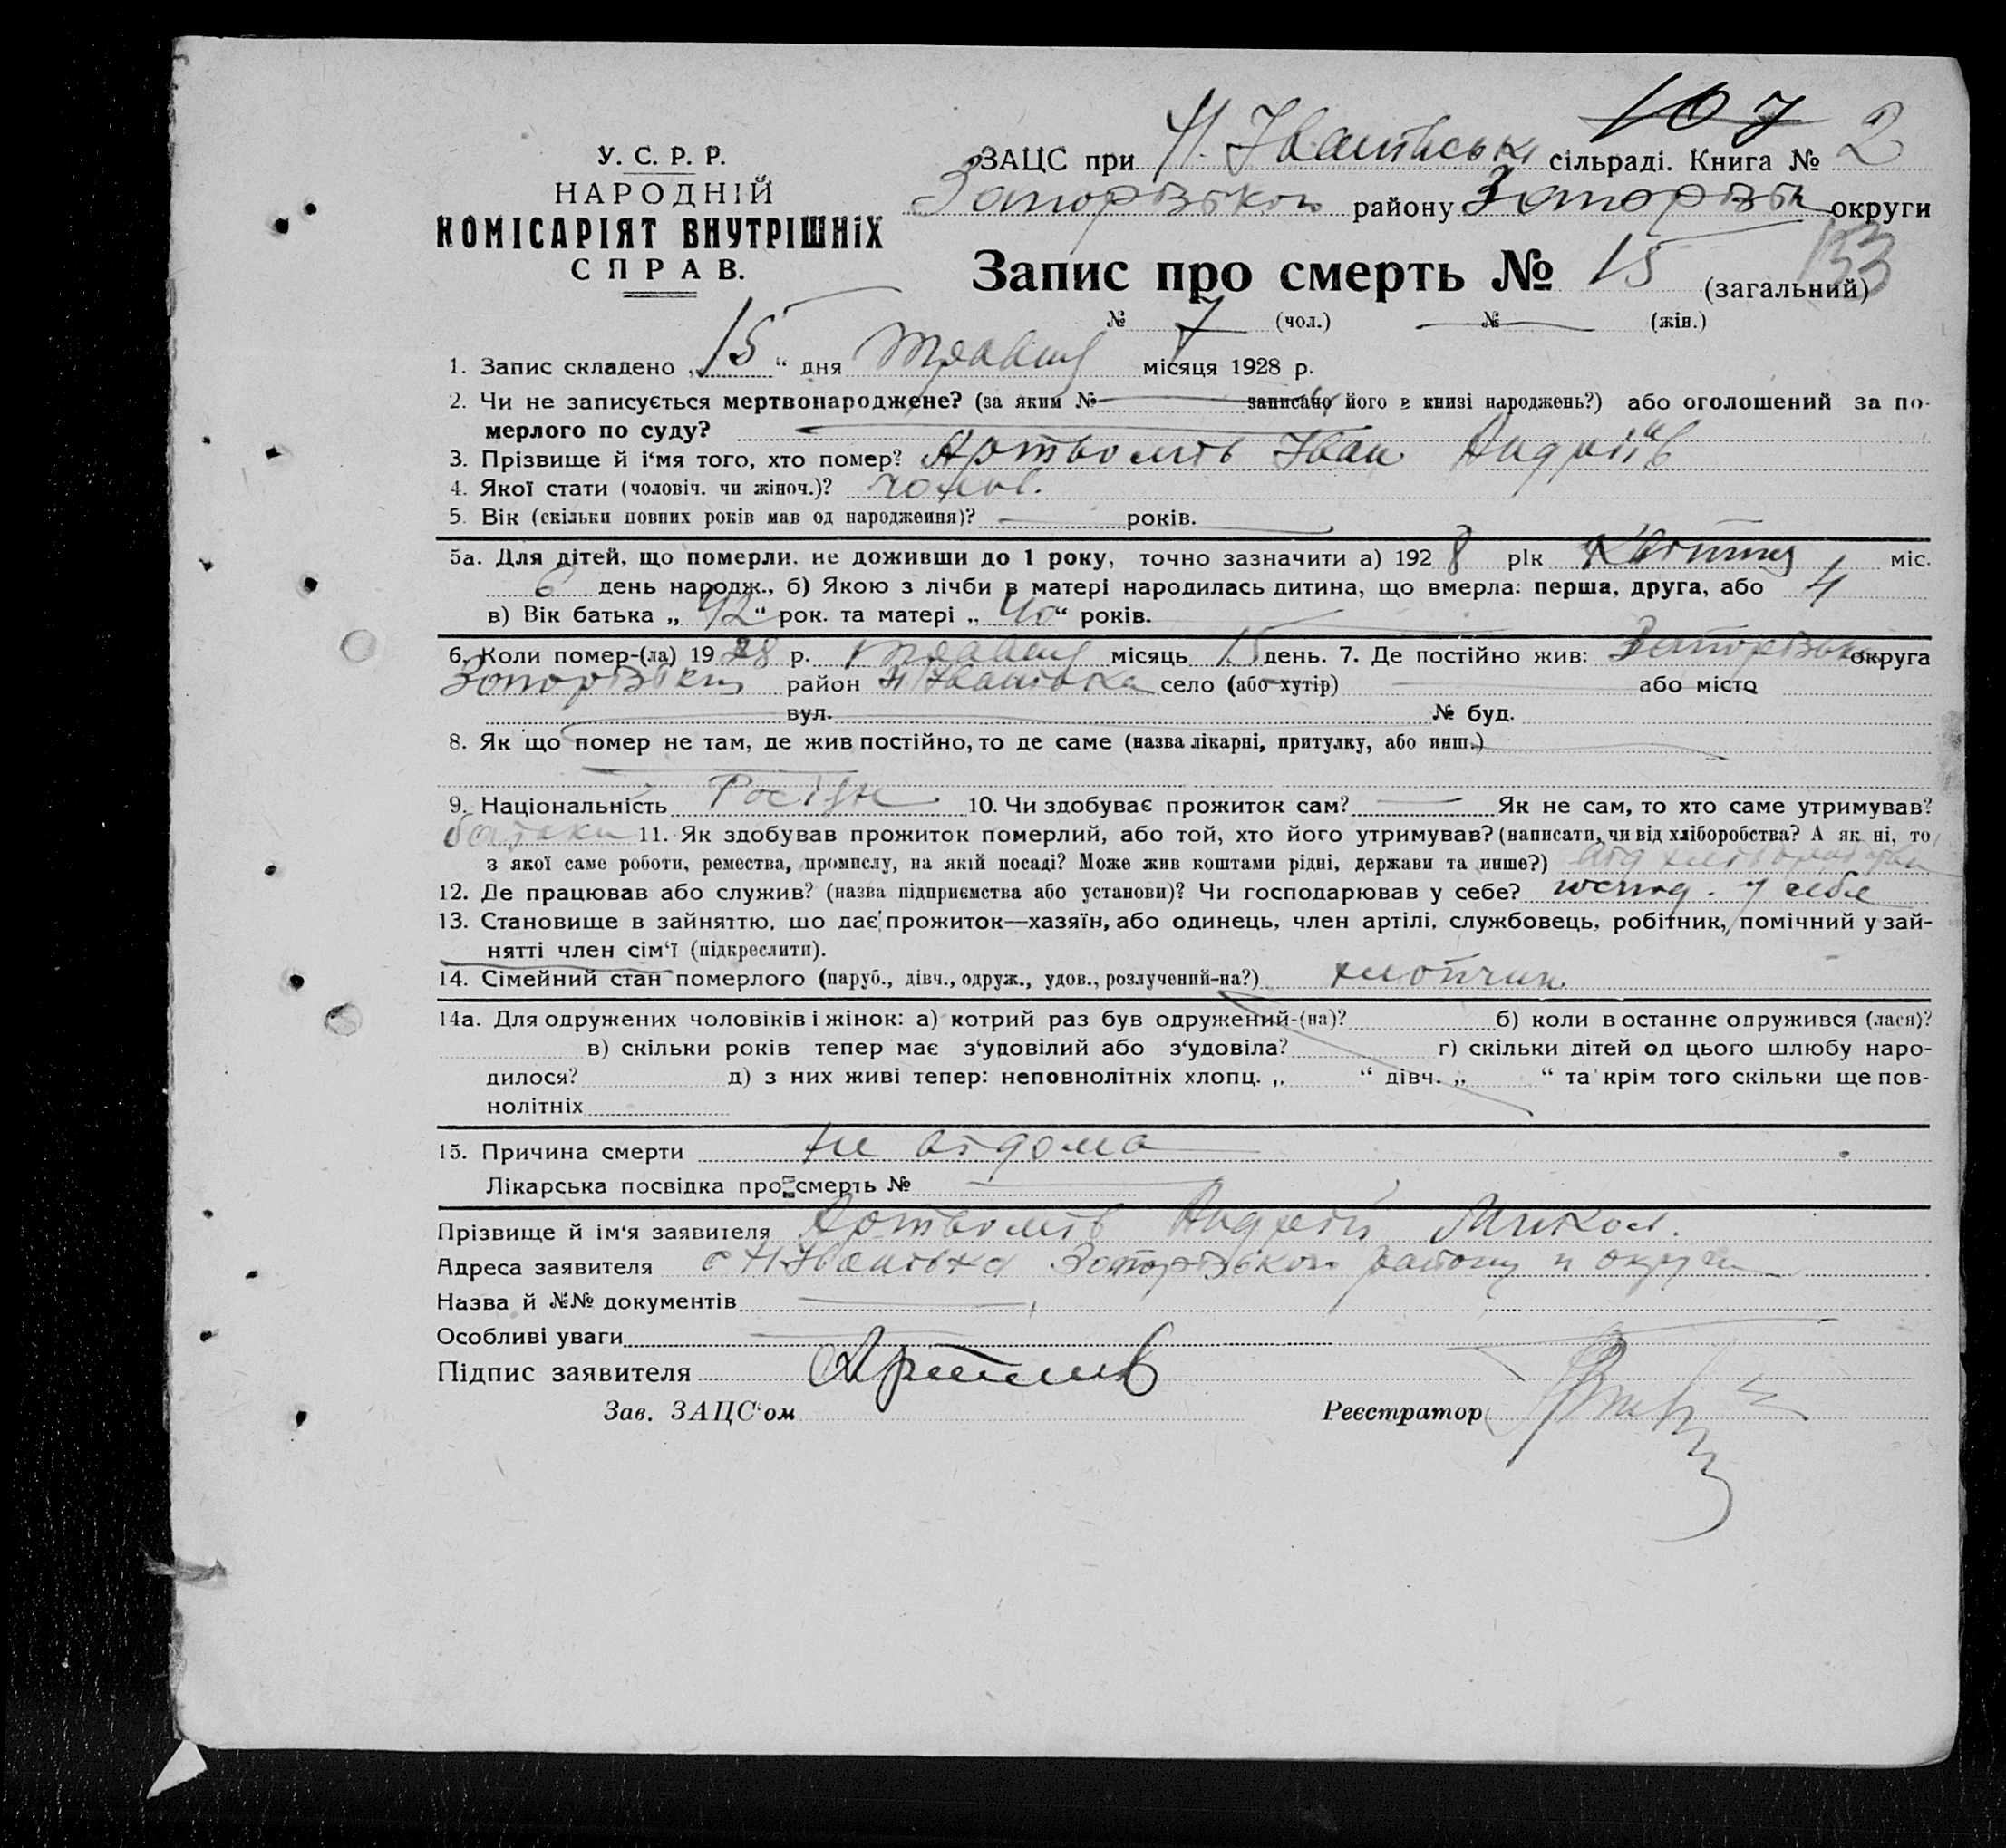 107
У. С. Р. Р.
НАРОДНІЙ
КОМІСАРІЯТ ВНУТРІШНІХ
СПРАВ.
ЗАЦС при Н. Іванівські сільраді. Книга № 2
Запорізького району Запорізьк округи
133
Запис про смерть № 15 (загальний)
№ 7 (чол.) № (жін.)
1. Запис складено „15“ дня травня місяця 1928 р.
2. Чи не записується мертвонароджене? (за яким № записано його в книзі народжень?) або оголошений за по-
мерлого по суду?
3. Прізвище й і‘мя того, хто помер? Іван Андріїв
4. Якої стати (чоловіч. чи жіноч.)? чолов.
5. Вік (скільки повних років мав од народження)? років.
5а. Для дітей, що померли, не доживши до 1 року, точно зазначити а) 1928 рік Квітня міс.
6 день народж., б) Якою з лічби в матері народилась дитина, що вмерла: перша, друга, або 4
в) Вік батька „42“ рок. та матері „40“ років.
6. Коли помер-(ла) 1928 р. травня місяць 15 день. 7. Де постійно жив: Запорізька округа
Запорізький район Н Іванівка село (або хутір) або місто
вул. № буд.
8. Як що помер не там, де жив постійно, то де саме (назва лікарні, притулку, або инш.)
9. Національність 10. Чи здобуває прожиток сам? Як не сам, то хто саме утримував?
батьки 11. Як здобував прожиток померлий, або той, хто його утримував? (написати, чи від хліборобства? А як ні, то
з якої саме роботи, ремества, промислу, на якій посаді? Може жив коштами рідні, держави та инше?) від хліборобства
12. Де працював або служив? (назва підприємства або установи)? Чи господарював у себе? у себе
13. Становище в зайняттю, що дає прожиток—хазяїн, або одинець, член артілі, службовець, робітник, помічний у зай-
нятті член сім‘ї (підкреслити).
14. Сімейний стан померлого (паруб., дівч., одруж., удов., розлучений-на?) хлопчик
14а. Для одружених чоловіків і жінок: а) котрий раз був одружений-(на)? б) коли востаннє одружився (лася)?
в) скільки років тепер має з‘удовілий або з‘удовіла? г) скільки дітей од цього шлюбу наро-
дилося? д) з них живі тепер: неповнолітніх хлопц. „ “ дівч. „ “ та крім того скільки ще пов-
нолітніх
15. Причина смерти не відома
Лікарська посвідка про смерть №
Прізвище й ім‘я заявителя Андрій Микол.
Адреса заявителя с Н Іванівка Запорізького району и округи
Назва й №№ документів
Особливі уваги
Підпис заявителя
Зав. ЗАЦС‘ом Реєстратор